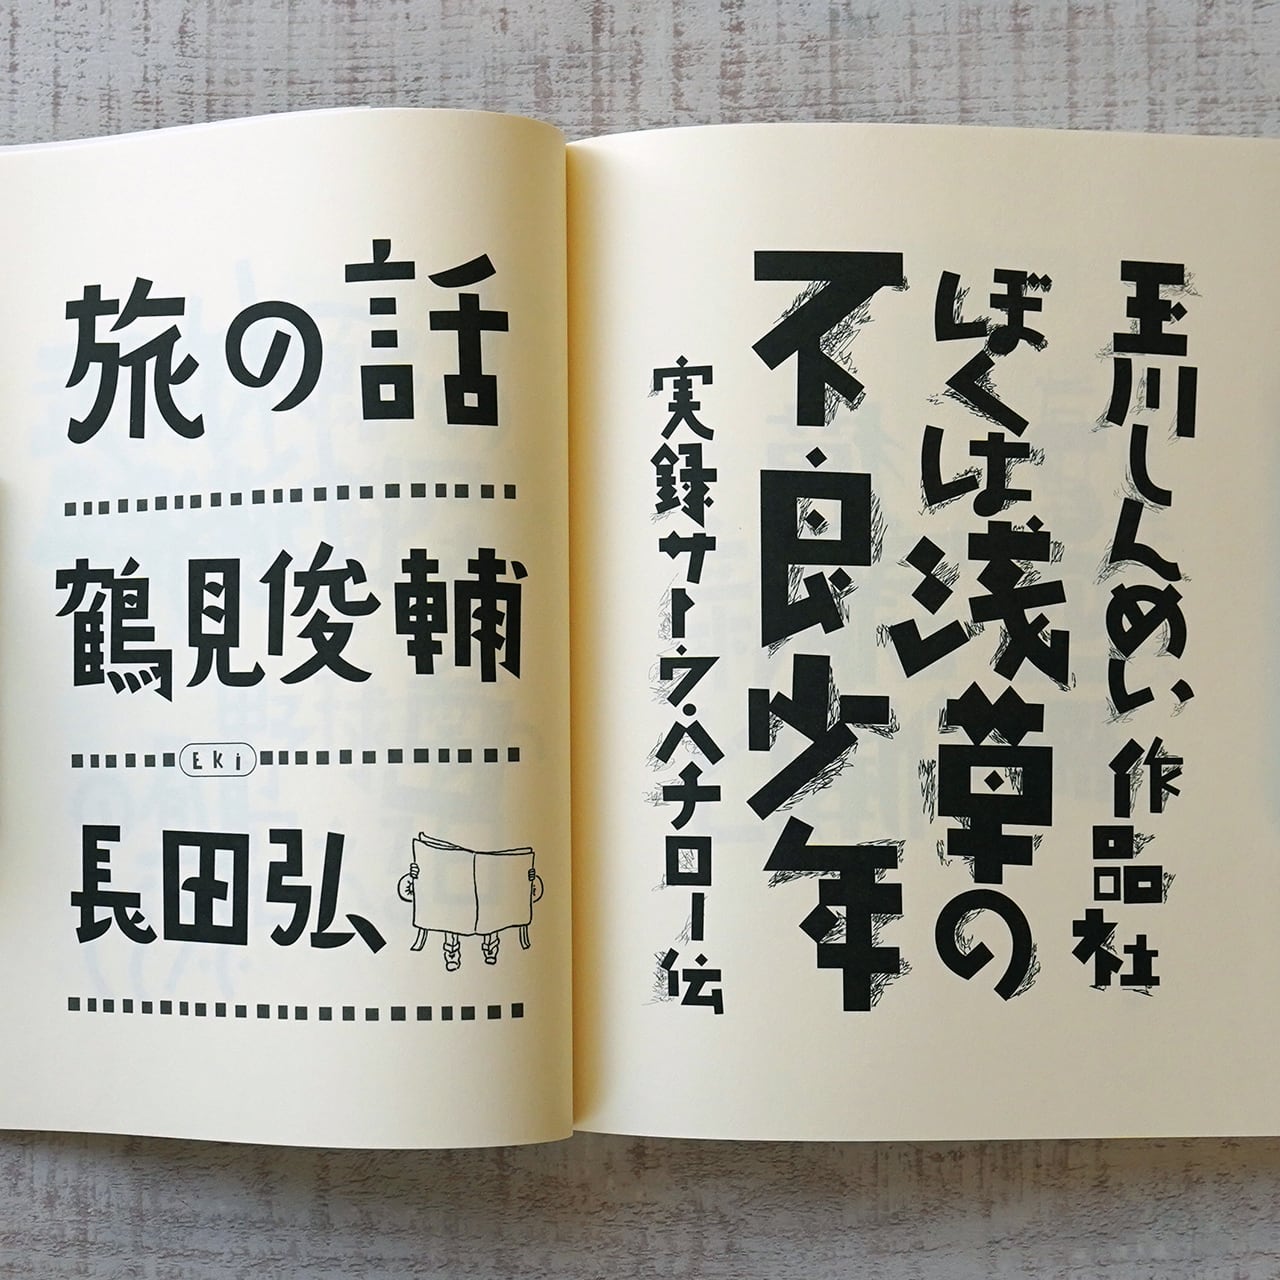 旅の話
鶴見俊輔
Eki
長田弘
玉川しんめい 作品社
ぼくは浅草の
不良少年
実録サトウ・ハチロー伝